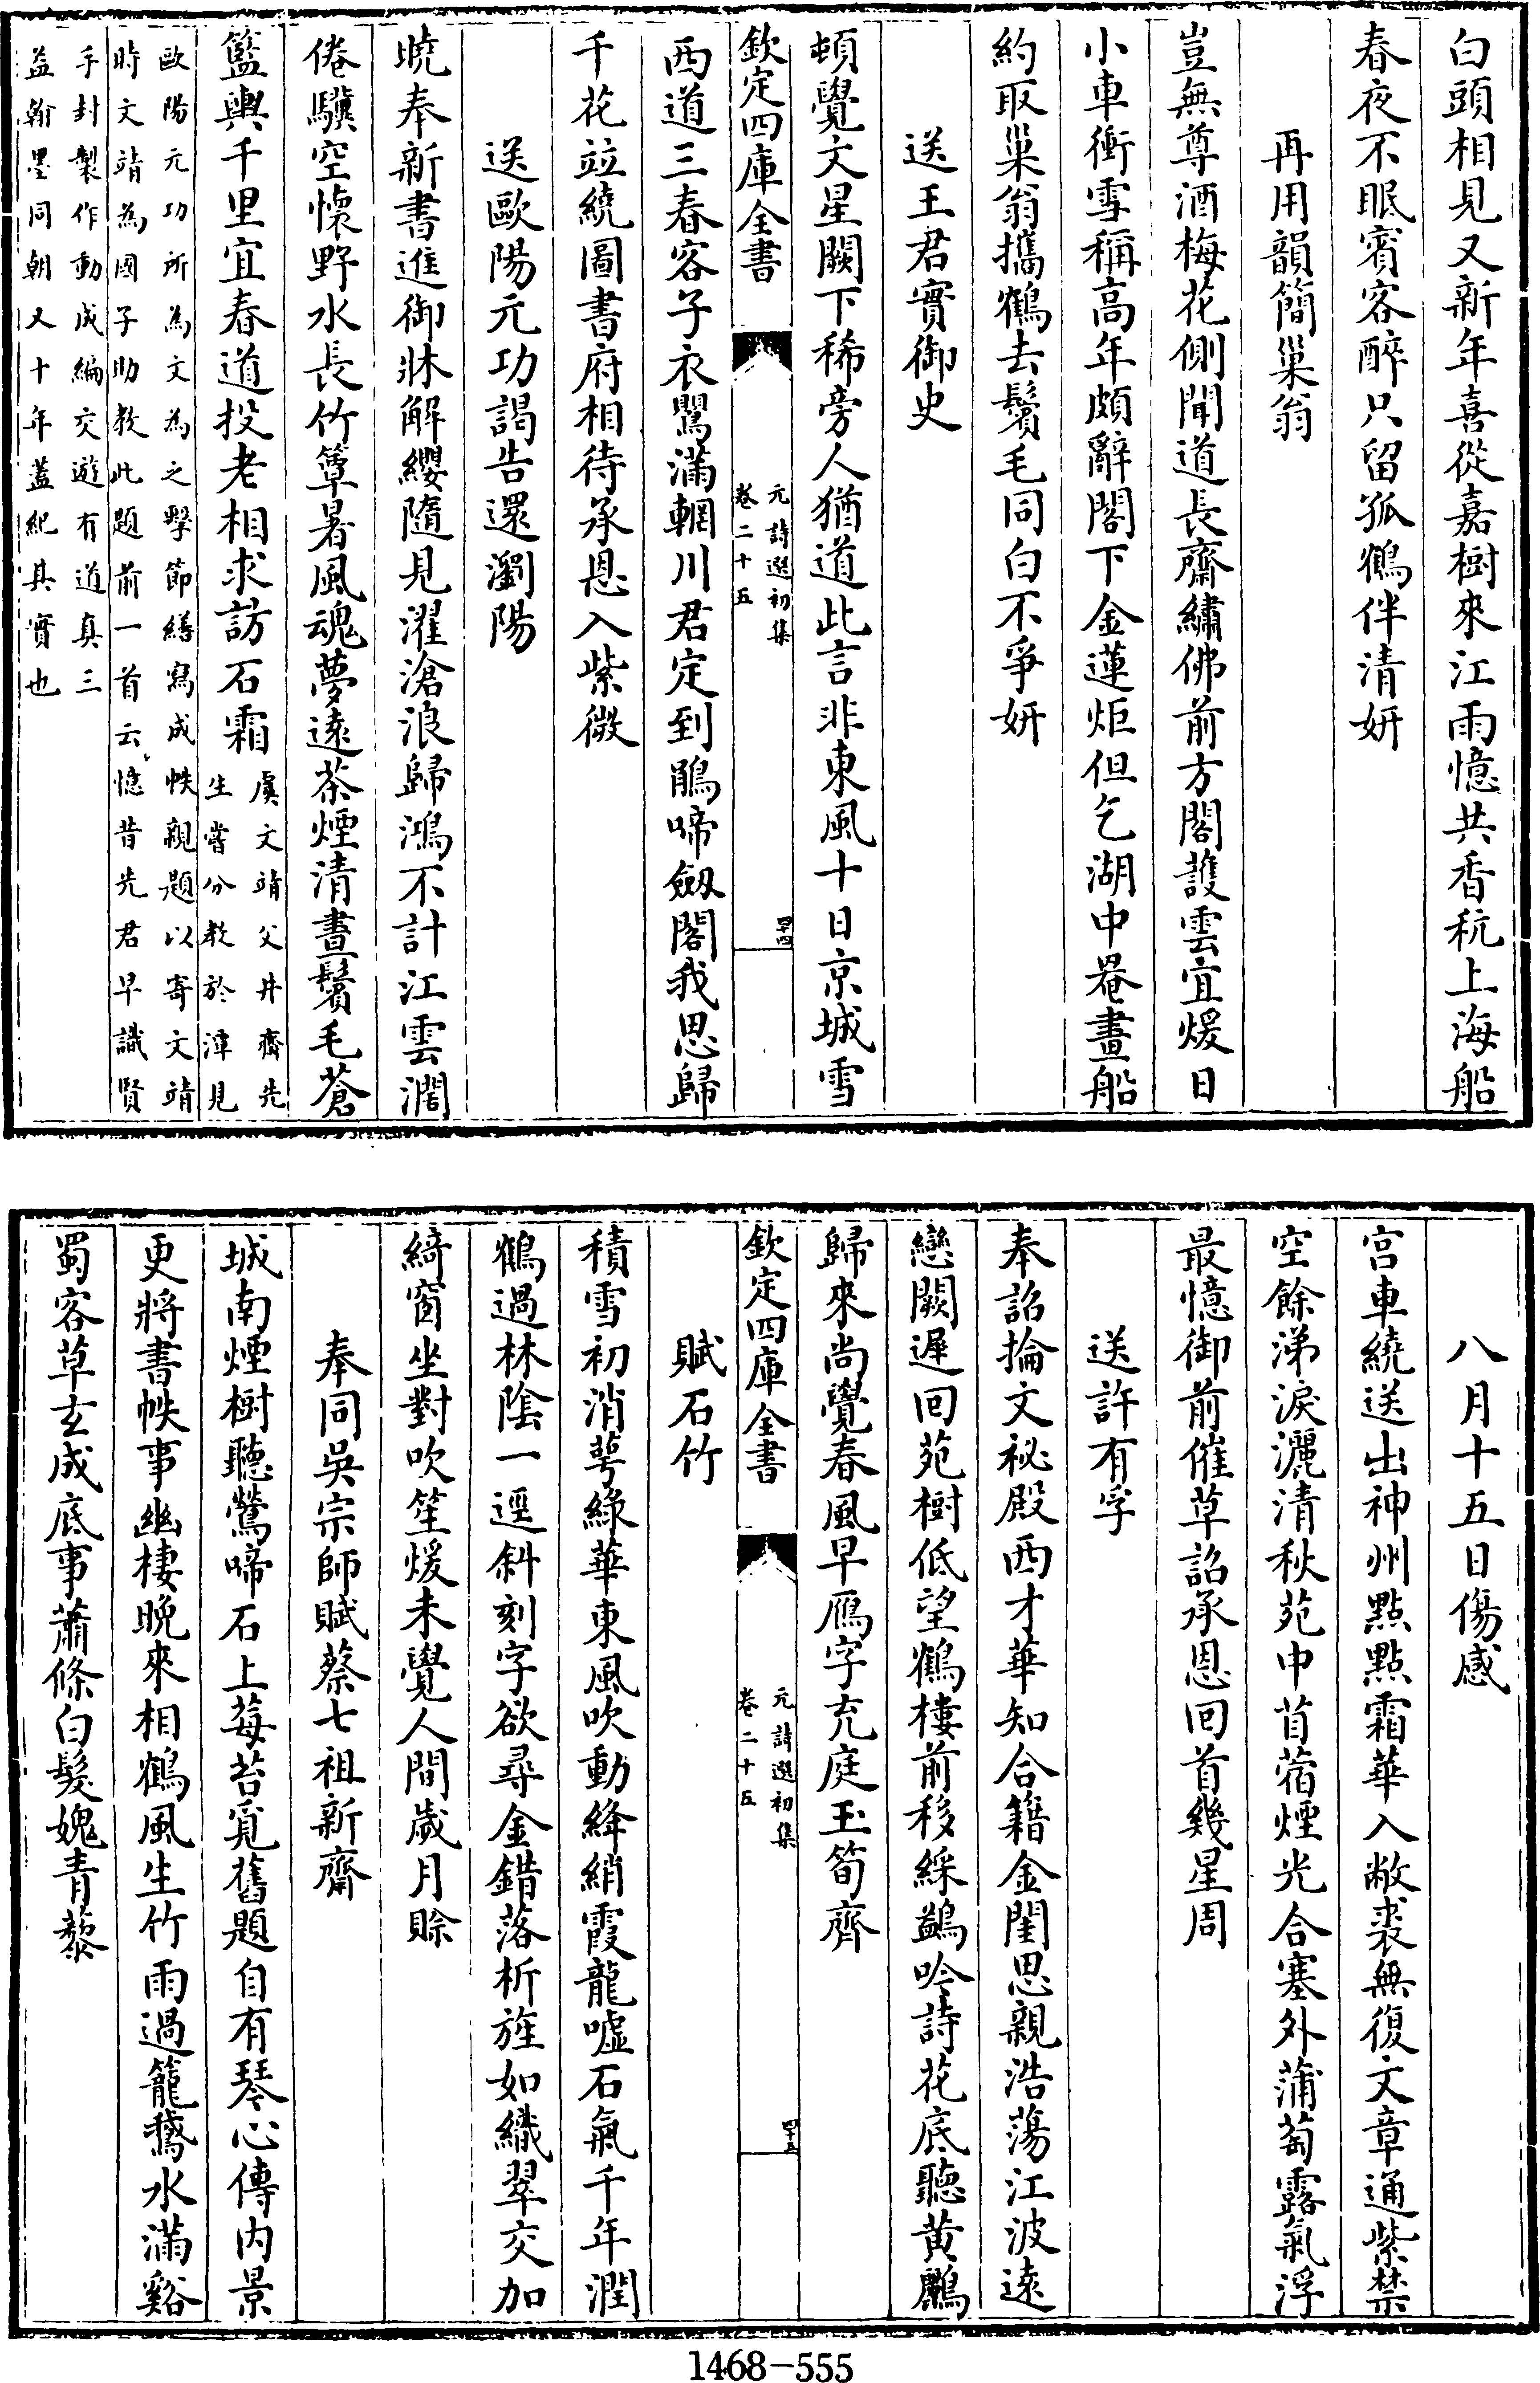 白頭相見又新年喜從嘉樹來江雨憶共香秔上海船
春夜不眠賓客醉只留孤鶴伴清妍
再用韻簡巢翁
豈無尊酒梅花側聞道長齋繡佛前方閣護雲宜煖日
小車衝雪稱高年頗辭閣下金蓮炬但乞湖中罨畫船
約取巢翁攜鶴去鬢毛同白不爭妍
送王君實御史
頓覺文星闕下稀旁人猶道此言非東風十日京城雪
欽定四庫全書
元詩選初集
卷二十五
四十四
西道三春客子衣鸎滿輞川君定到鵑啼劔閣我思歸
千花竝繞圖書府相待承恩入紫微
送歐陽元功謁告還瀏陽
曉奉新書進御牀解纓隨見濯滄浪歸鴻不計江雲濶
倦驥空懷野水長竹簟暑風魂夢遠茶煙清晝鬢毛蒼
籃輿千里宜春道投老相求訪石霜
虞文靖父井齋先
生嘗分教於潭見
歐陽元功所為文為之擊節繕寫成帙親題以寄文靖
時文靖為國子助教此題前一首云憶昔先君早識賢
手封製作動成編交遊有道真三
益翰墨同朝又十年蓋紀其實也
八月十五日傷感
宮車繞送出神州點點霜華入敝裘無復文章通紫禁
空餘涕淚灑清秋苑中苜蓿煙光合塞外蒲萄露氣浮
最憶御前催草詔承恩回首幾星周
送許有孚
奉詔掄文祕殿西才華知合籍金閨思親浩蕩江波遠
戀闕遲回苑樹低望鶴樓前移綵鷁吟詩花底聽黄鸝
歸來尚覺春風早鴈字充庭玉筍齊
欽定四庫全書
元詩選初集
卷二十五
四十五
賦石竹
積雪初消萼綠華東風吹動絳綃霞龍嘘石氣千年潤
鶴過林陰一逕斜刻字欲尋金錯落析旌如織翠交加
綺窗坐對吹笙煖未覺人間歲月賒
奉同吳宗師賦蔡七祖新齋
城南煙樹聽鶯啼石上莓苔覓舊題自有琴心傳内景
更將書帙事幽棲晚來相鶴風生竹雨過籠鵞水滿谿
蜀客草玄成底事蕭條白髮媿青藜
1468-555